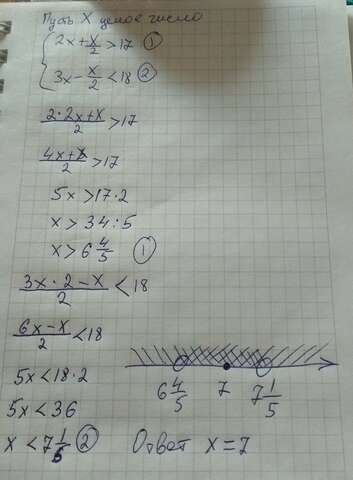 Пусть X целое число
{ 2x + x/2 > 17 ①
3x - x/2 < 18 ②
(2·2x+x)/2 > 17
(4x+x)/2 > 17
5x > 17·2
x > 34:5
x > 6 4/5 ①
(3x·2-x)/2 < 18
(6x-x)/2 < 18
5x < 18·2
5x < 36
x < 7 1/5 ②
6 4/5 7 7 1/5
Ответ x=7